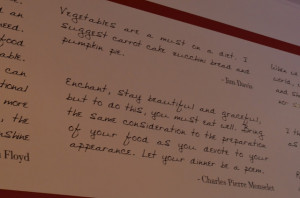 Vegetables are a must on a diet. I
suggest carrot cake zucchini bread and
pumpkin pie.
- Jim Davis
Enchant, stay beautiful and graceful,
but to do this, you must eat well. Bring
the same consideration to the preparation
of your food as you devote to your
appearance. Let your dinner be a poem.
- Charles Pierre Monselet
an
need.
food
able.
can
tional
more
the
nshine
Floyd
and